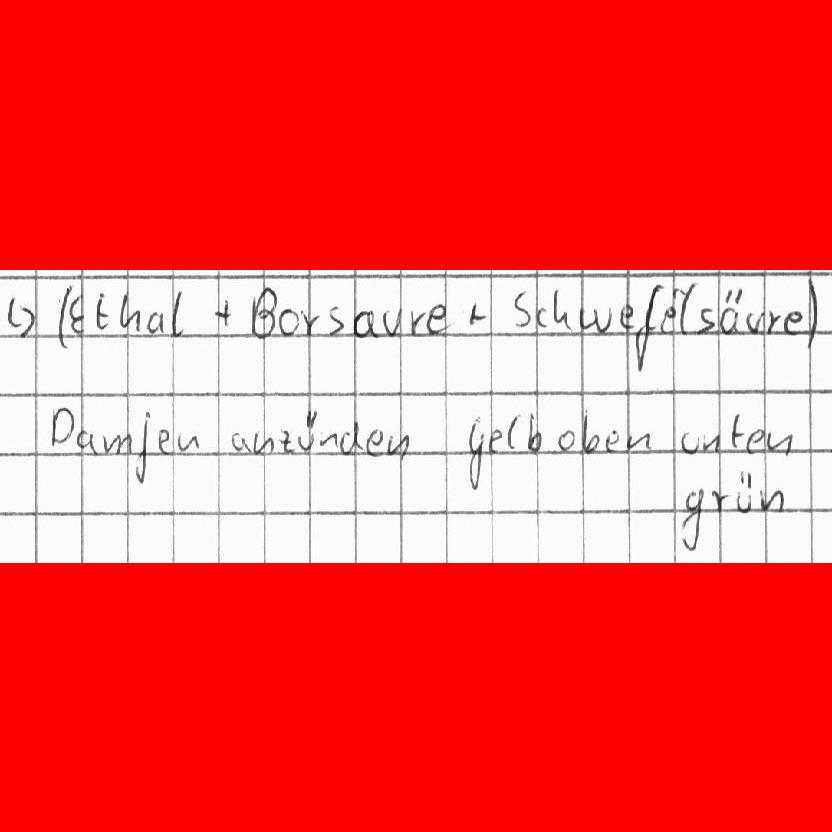 ↳ (Ethal + Borsaure + Schwefelsäure)
Damfen anzünden gelb oben unten
grün